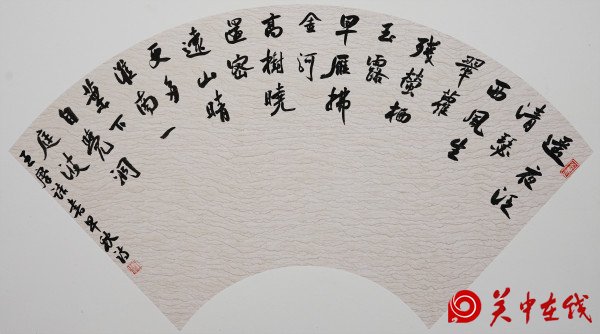 遥夜泛
清瑟
西風生
翠蘿
殘螢栖
玉露
早雁拂
金河
高樹曉
還密
遠山晴
更多一
淮南
葉下洞
自覺
庭波
王 書早秋詩
关中在线